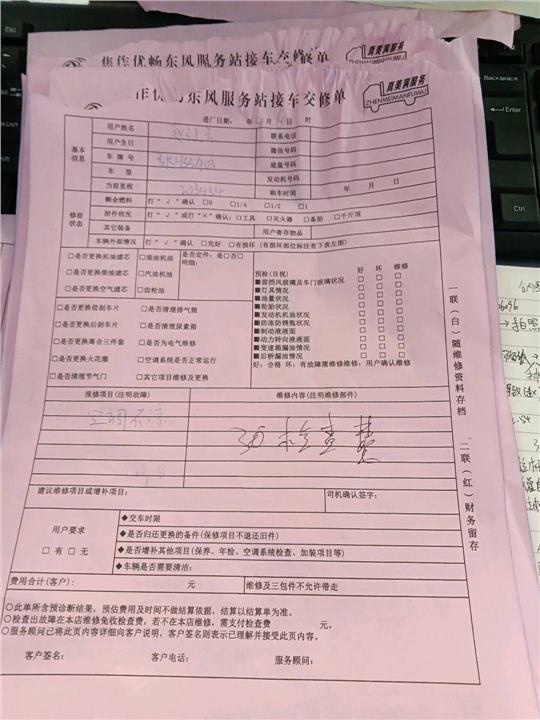 焦作优畅东风服务站接车交修单
真美满服务
作优畅东风服务站接车交修单
真美满服务
ZHENMEIMANFUWU
进厂日期： 年 月 日 时
基本信息
用户姓名
联系电话
用户生日
微信号码
车牌号
底盘号码
车型
发动机号码
当前里程
购车时间 年 月 日
修前状态
剩余燃料 打“√”确认 □0 □1/4 □1/2 □1
附件状况 打“√”或打“×”确认：□工具 □灭火器 □备胎 □千斤顶
其它装备
用户寄存物品
车辆外部情况 打“√”确认 □完好 □有损坏（有损坏部位标注有下表左图）
□是否更换机油滤芯 □柴油机油
□是否更换柴油滤芯 □汽油机油
□是否更换空气滤芯 □齿轮油
是否定件：是□否□
明细：
□是否更换前刹车片 □是否清理排气筒
□是否更换后刹车片 □是否清理尿素箱
□是否更换离合三件套 □是否为电气维修
□是否更换火花塞 □空调系统是否正常运行
□是否清理节气门 □其它项目维修及更换
预检（目视） 好 坏 维修
■前挡风玻璃及车门玻璃状况 □ □ □
■灯具情况 □ □ □
■油量状况 □ □ □
■轮胎状况 □ □ □
■发动机机油状况 □ □ □
■防冻防锈瓶状况 □ □ □
■制动液液面 □ □ □
■动力转向液液面 □ □ □
■变速箱漏油情况 □ □ □
■后桥漏油情况 □ □ □
好：合格 坏：有故障需维修维修：用户确认维修
报修项目（注明故障）
维修内容（注明维修部件）
空调不凉
检查
建议维修项目或增补项目：
司机确认签字：
用户要求
□有 □无
◆交车时限
◆是否归还更换的备件（保修项目不退还旧件）
◆是否增补其他项目（保养、年检、空调系统检查、加装项目等）
◆车辆是否需要清洁：
费用合计（客户）： 元
维修及三包件不允许带走
○此单所含预诊断结果，预估费用及时间不做结算依据，结算以结算单为准。
○检查出故障在本店维修免收检查费，若不在本店维修，需支付检查费 元。
○服务顾问已将此页内容详细向客户说明，客户签名则表示已理解并接受此页内容。
客户签名： 客户电话： 服务顾问：
一联（白）随维修资料存档 二联（红）财务留存
Ctrl